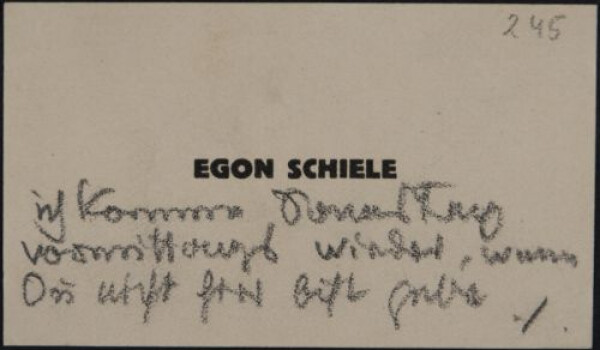 245
EGON SCHIELE
ich komme Donnerstag
vormittags wieder, wenn
Du nicht hier bist